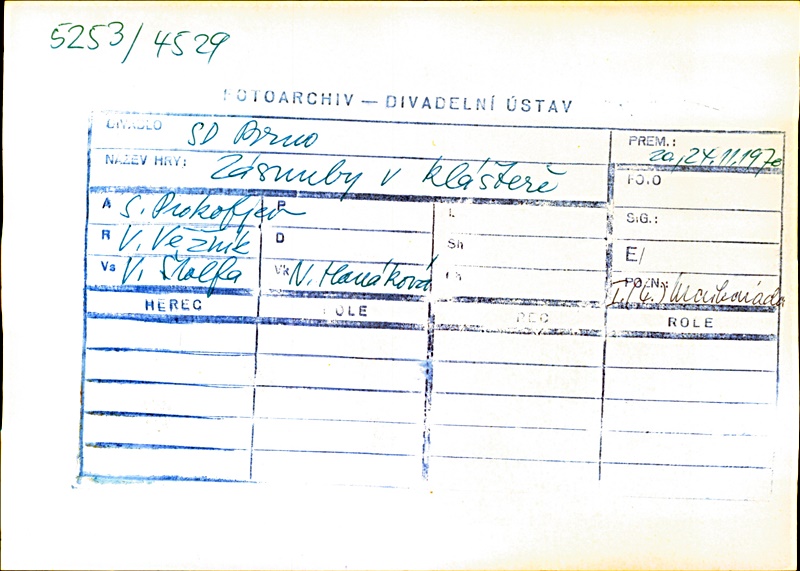 5253/4529
FOTOARCHIV — DIVADELNÍ ÚSTAV
DIVADLO SD Brno
PREM.: 24.11.1970
NÁZEV HRY: Zásnuby v klášteře
FOTO
A S. Prokofjev P L
SIG.:
R V. Věžník D Sh
E/
Vs V. Štolfa Vk N. Hanáková Ch
POZN.:
HEREC ROLE REC ROLE